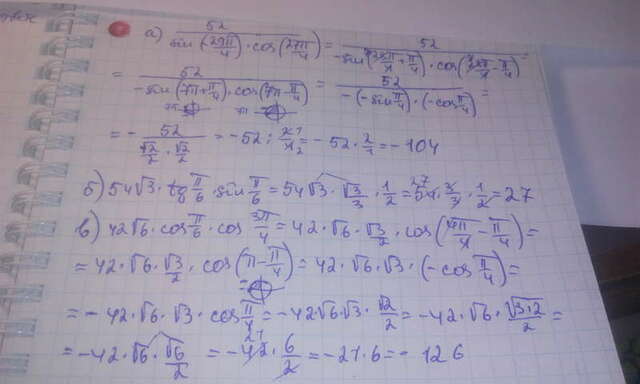 а) 52 / (sin(-29π/4) · cos(27π/4)) = 52 / (-sin(28π/4 + π/4) · cos(28π/4 - π/4)) =
= 52 / (-sin(7π + π/4) · cos(7π - π/4)) = 52 / (-(-sin π/4) · (-cos π/4)) =
= - 52 / (√2/2 · √2/2) = -52 : 2/4 = -52 · 2/1 = -104
б) 54√3 · tg π/6 · sin π/6 = 54√3 · √3/3 · 1/2 = 54 · 3/3 · 1/2 = 27
в) 42√6 · cos π/6 · cos 3π/4 = 42 · √6 · √3/2 · cos(4π/4 - π/4) =
= 42 · √6 · √3/2 · cos(π - π/4) = 42 · √6 · √3 · (-cos π/4) =
= -42 · √6 · √3 · cos π/4 = -42 √6 √3 · √2/2 = -42 · √6 · √(3·2)/2 =
= -42 · √6 · √6/2 = -42 · 6/2 = -21 · 6 = -126